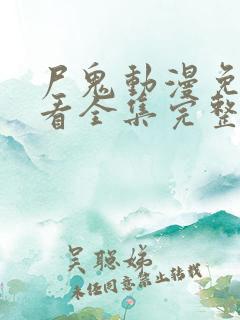 尸鬼動漫免
看全集完整
吴聪娣
未经同意禁止转载